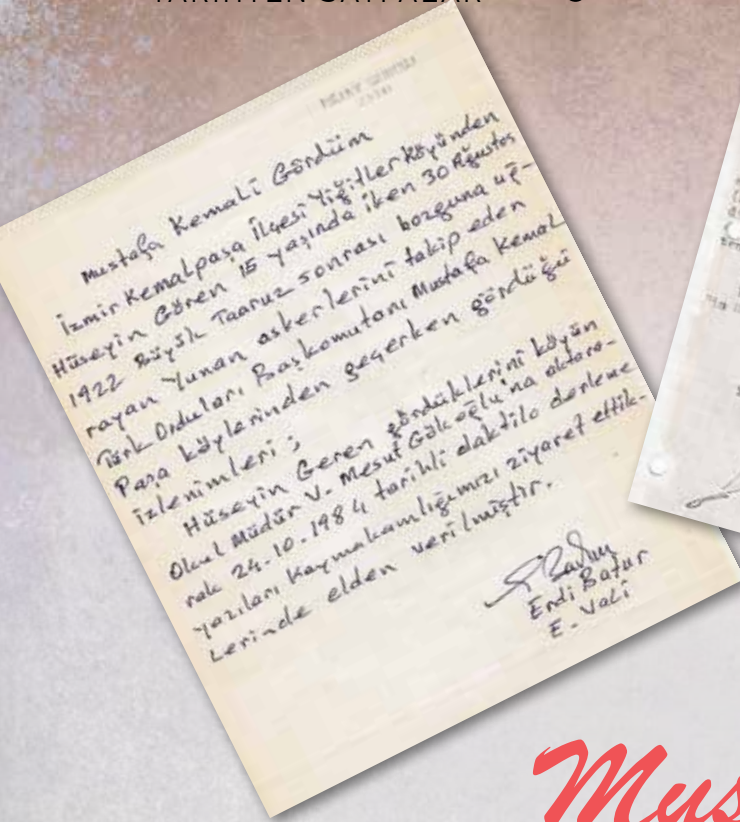 TARİHTEN SAYFALAR
Mustafa Kemali Gördüm
İzmir Kemalpaşa ilçesi Yiğitler köyünden
Hüseyin Gören 15 yaşında iken 30 Ağustos
1922 Büyük Taaruz sonrası bozguna uğ-
rayan Yunan askerlerini takip eden
Türk Orduları Başkomutanı Mustafa Kemal
Paşa köylerinden geçerken gördüğü
izlenimleri;
Hüseyin Geren gördüklerini köyün
Okul Müdür V. Mesut Gökoğlu'na aktara-
rak 24.10.1984 tarihli daktilo derleme
yazıları Kaymakamlığımızı ziyaret ettik-
lerinde elden verilmiştir.
Erdi Batur
E-Vali
Mus